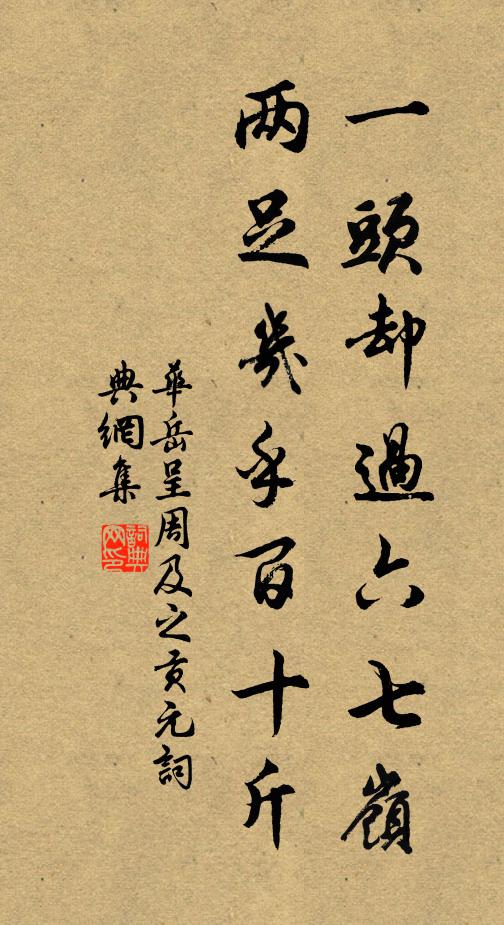 一頭却過六七嶺
两足幾乎百十斤
華岳呈周及之貢元詞
典網集
詞典
网印